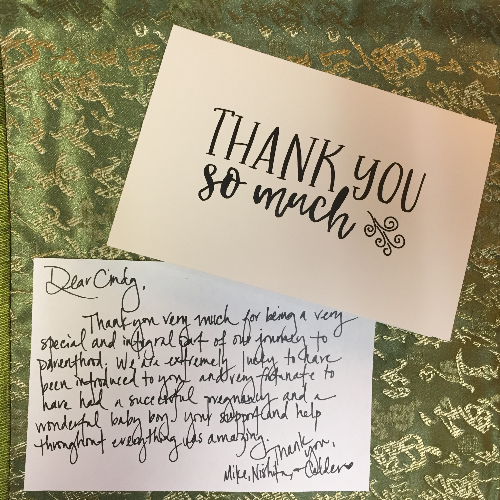 THANK YOU
so much
Dear Cindy,
Thank you very much for being a very
special and integral part of our journey to
parenthood. We are extremely lucky to have
been introduced to you and very fortunate to
have had a successful pregnancy and a
wonderful baby boy. Your support and help
throughout everything was amazing.
Thank you,
Mike, Nishita, + Calder